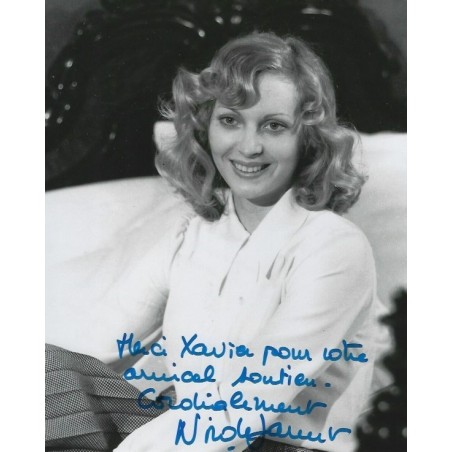 Merci Xavier pour votre
amical soutien.
Cordialement